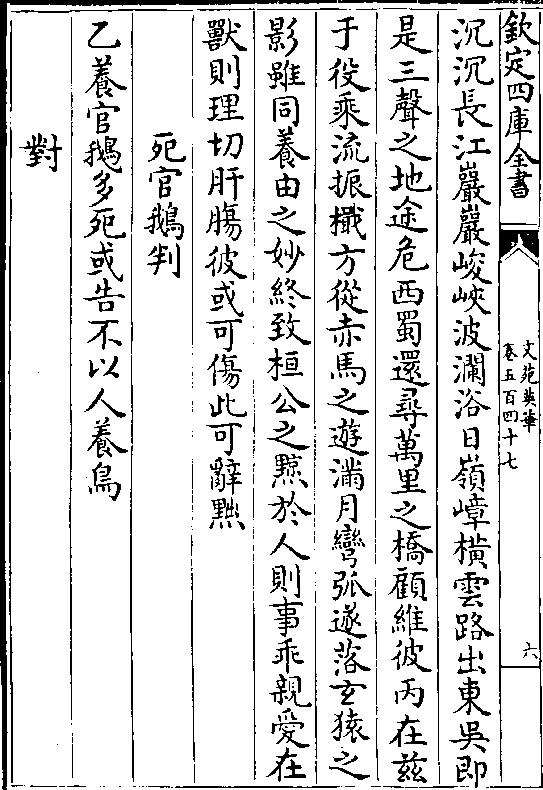 欽定四庫全書
文苑英華
卷五百四十七
六
沉沉長江巖巖峻峽波瀾浴日嶺嶂橫雲路出東吳即
是三聲之地途危西蜀還尋萬里之橋顧維彼丙在兹
于役乘流振檝方從赤馬之遊滿月彎弧遂落玄猿之
影雖同養由之妙終致桓公之黥於人則事乖親愛在
獸則理切肝膓彼或可傷此可辭黜
死官鵝判
乙養官鵝多死或告不以人養鳥
對